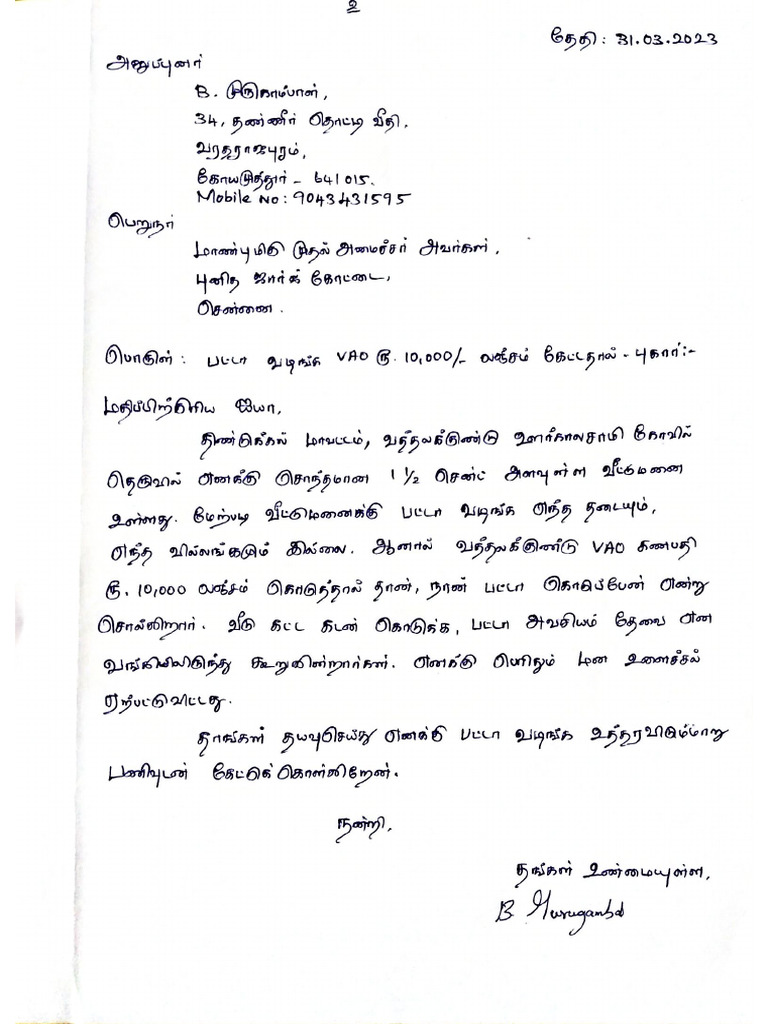 உ
தேதி : 31.03.2023
அனுப்புனர்
B. முருகாம்பாள்,
34, தண்ணீர் தொட்டி வீதி,
வரதராஜபுரம்,
கோயமுத்தூர் - 641 015.
Mobile No : 9043431595
பெறுநர்
மாண்புமிகு முதல் அமைச்சர் அவர்கள்,
புனித ஜார்ஜ் கோட்டை,
சென்னை.
பொருள் : பட்டா வழங்க VAO ரூ. 10,000/- லஞ்சம் கேட்டதால் - புகார்:-
மதிப்பிற்குரிய ஐயா,
திண்டுக்கல் மாவட்டம், வத்தலக்குண்டு ஊர்காலசாமி கோவில்
தெருவில் எனக்கு சொந்தமான 1 1/2 சென்ட் அளவுள்ள வீட்டுமனை
உள்ளது. மேற்படி வீட்டுமனைக்கு பட்டா வழங்க எந்த தடையும்,
எந்த வில்லங்கமும் இல்லை. ஆனால் வத்தலக்குண்டு VAO கணபதி
ரூ. 10,000 லஞ்சம் கொடுத்தால் தான், நான் பட்டா கொடுப்பேன் என்று
சொல்கிறார். வீடு கட்ட கடன் கொடுக்க, பட்டா அவசியம் தேவை என
வங்கியிலிருந்து கூறுகின்றார்கள். எனக்கு பெரிதும் மன உளைச்சல்
ஏற்பட்டுவிட்டது.
தாங்கள் தயவுசெய்து எனக்கு பட்டா வழங்க உத்தரவிடும்மாறு
பணிவுடன் கேட்டுக்கொள்கிறேன்.
நன்றி,
தங்கள் உண்மையுள்ள,
B. Murugambal